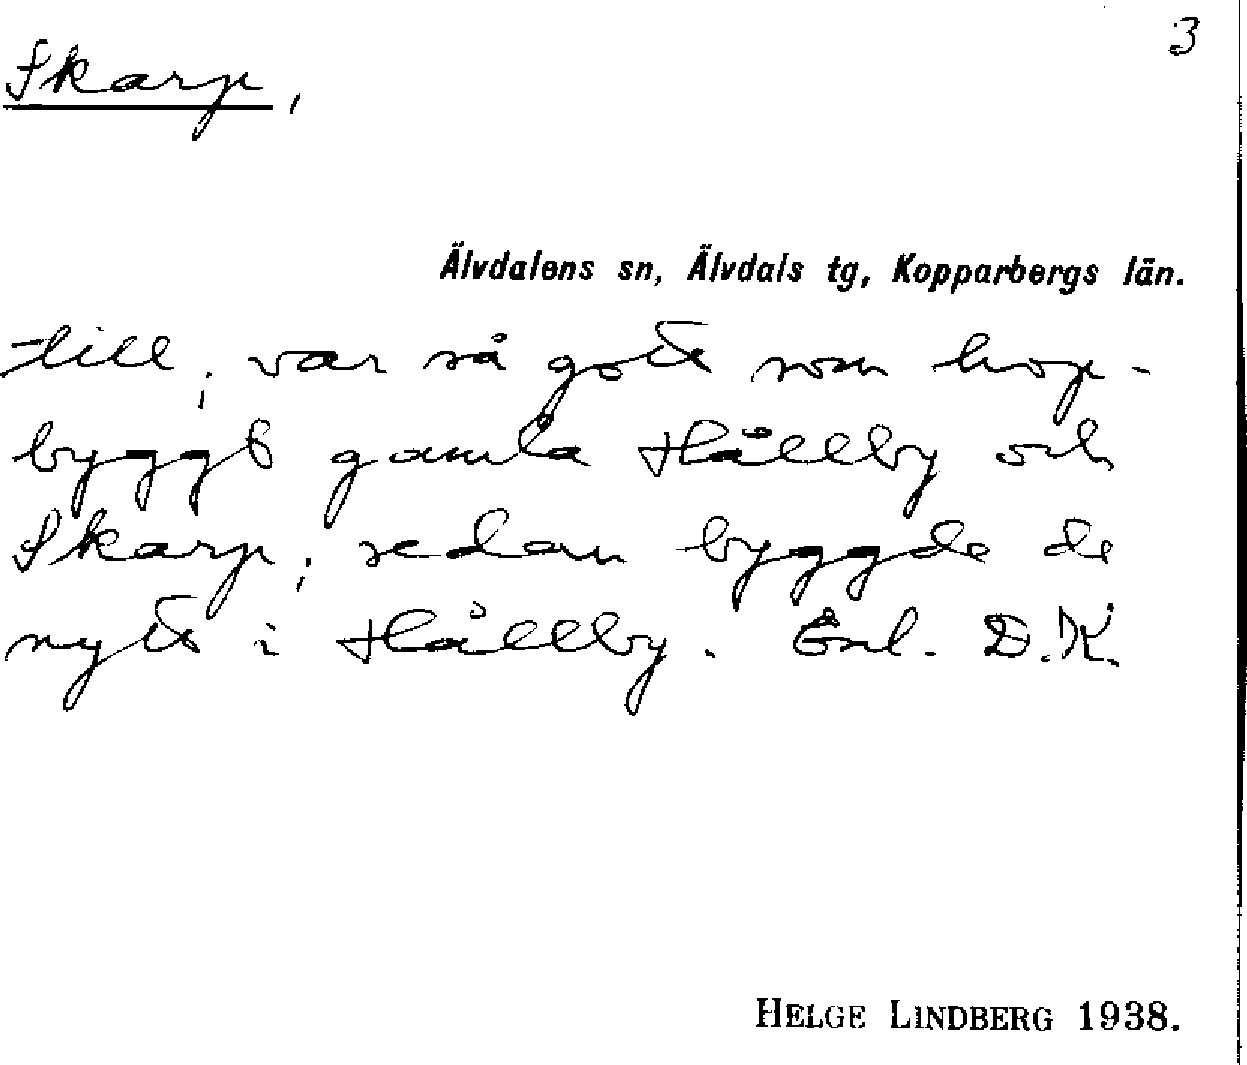 3
Skarp,
Älvdalens sn, Älvdals tg, Kopparbergs län.
till; var så gott som hop-
byggt gamla Hållby och
Skarp; sedan byggde de
nytt i Hållby. Enl. D.K.
HELGE LINDBERG 1938.